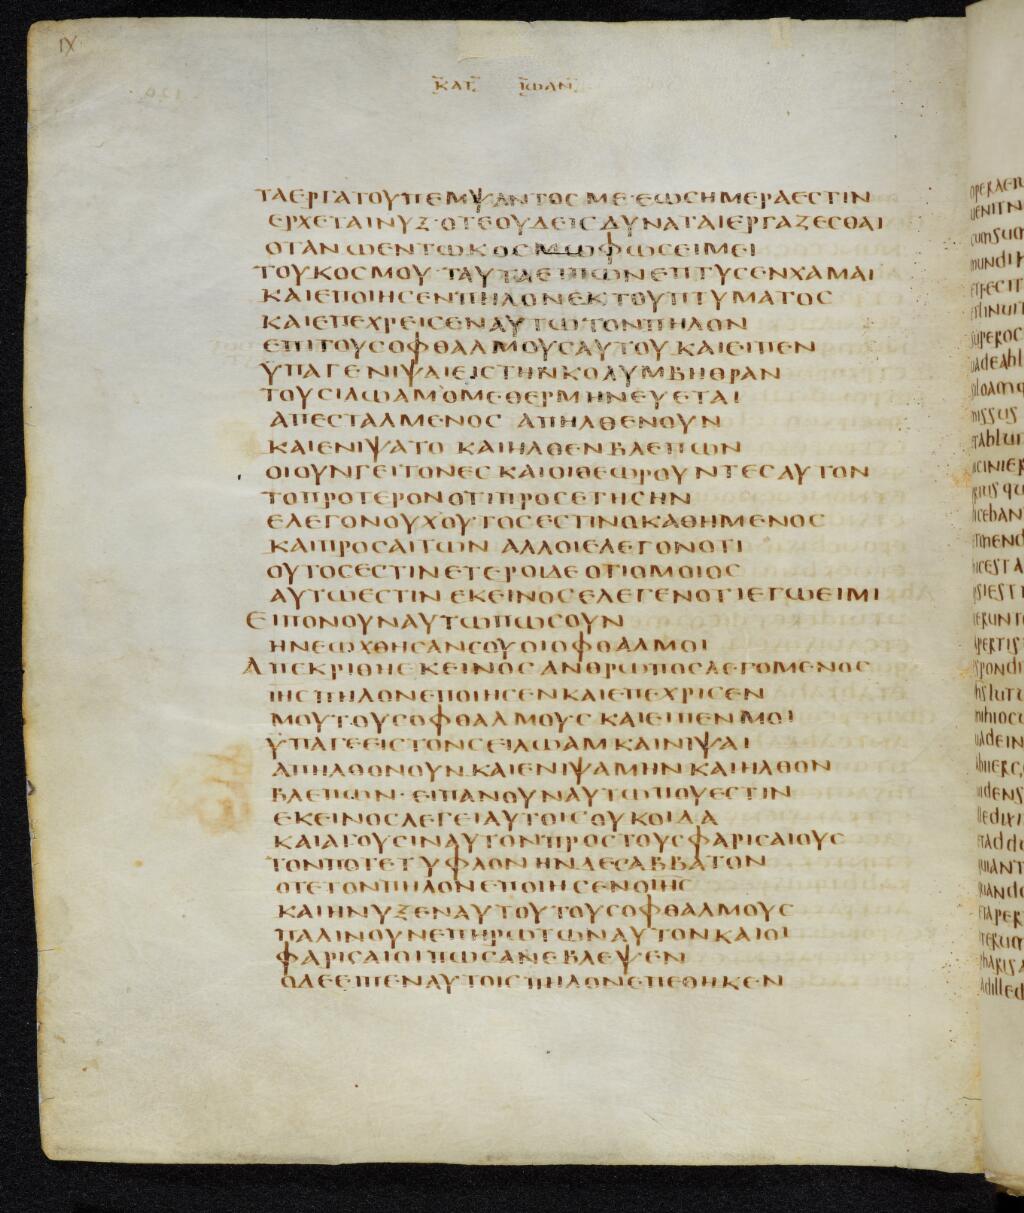 IX
ΚΑΤ ΙΩΑΝ
ΤΑΕΡΓΑΤΟΥΠΕΜΨΑΝΤΟΣ ΜΕ·ΕΩΣΗΜΕΡΑΕΣΤΙΝ
ΕΡΧΕΤΑΙΝΥΞ·ΟΤΕΟΥΔΕΙΣΔΥΝΑΤΑΙΕΡΓΑΖΕΣΘΑΙ
ΟΤΑΝ ΩΕΝΤΩΚΟΣΜΩΦΩΣΕΙΜΕΙ
ΤΟΥΚΟΣΜΟΥ·ΤΑΥΤΑΕΙΠΩΝΕΠΤΥΣΕΝΧΑΜΑΙ
ΚΑΙΕΠΟΙΗΣΕΝΠΗΛΟΝΕΚΤΟΥΠΤΥΜΑΤΟΣ
ΚΑΙΕΠΕΧΡΕΙΣΕΝΑΥΤΩ·ΤΟΝΠΗΛΟΝ
ΕΠΙΤΟΥΣΟΦΘΑΛΜΟΥΣΑΥΤΟΥ ΚΑΙΕΙΠΕΝ
ΥΠΑΓΕΝΙΨΑΙΕΙΣΤΗΝΚΟΛΥΜΒΗΘΡΑΝ
ΤΟΥΣΙΛΩΑΜ·ΟΜΕΘΕΡΜΗΝΕΥΕΤΑΙ
ΑΠΕΣΤΑΛΜΕΝΟΣ ΑΠΗΛΘΕΝΟΥΝ
ΚΑΙΕΝΙΨΑΤΟ ΚΑΙΗΛΘΕΝΒΛΕΠΩΝ
ΟΙΟΥΝΓΕΙΤΟΝΕΣ ΚΑΙΟΙΘΕΩΡΟΥΝΤΕΣΑΥΤΟΝ
ΤΟΠΡΟΤΕΡΟΝΟΤΙΠΡΟΣΕΤΗΣΗΝ
ΕΛΕΓΟΝΟΥΧΟΥΤΟΣΕΣΤΙΝΟΚΑΘΗΜΕΝΟΣ
ΚΑΙΠΡΟΣΑΙΤΩΝ ΑΛΛΟΙΕΛΕΓΟΝΟΤΙ
ΟΥΤΟΣΕΣΤΙΝΕΤΕΡΟΙΔΕ ΟΤΙΟΜΟΙΟΣ
ΑΥΤΩΕΣΤΙΝ ΕΚΕΙΝΟΣΕΛΕΓΕΝΟΤΙΕΓΩΕΙΜΙ
ΕΙΠΟΝΟΥΝΑΥΤΩΠΩΣΟΥΝ
ΗΝΕΩΧΘΗΣΑΝΣΟΥΟΙΟΦΘΑΛΜΟΙ
ΑΠΕΚΡΙΘΗΕΚΕΙΝΟΣΑΝΘΡΩΠΟΣΛΕΓΟΜΕΝΟΣ
ΙΗΣΠΗΛΟΝΕΠΟΙΗΣΕΝΚΑΙΕΠΕΧΡΙΣΕΝ
ΜΟΥΤΟΥΣΟΦΘΑΛΜΟΥΣ ΚΑΙΕΙΠΕΝΜΟΙ
ΥΠΑΓΕΕΙΣΤΟΝΣΕΙΛΩΑΜ ΚΑΙΝΙΨΑΙ
ΑΠΗΛΘΟΝΟΥΝ.ΚΑΙΕΝΙΨΑΜΗΝ ΚΑΙΗΛΘΟΝ
ΒΛΕΠΩΝ·ΕΙΠΑΝΟΥΝΑΥΤΩΠΟΥΕΣΤΙΝ
ΕΚΕΙΝΟΣΛΕΓΕΙΑΥΤΟΙΣΟΥΚΟΙΔΑ
ΚΑΙΑΓΟΥΣΙΝΑΥΤΟΝΠΡΟΣΤΟΥΣΦΑΡΙΣΑΙΟΥΣ
ΤΟΝΠΟΤΕΤΥΦΛΟΝ ΗΝΔΕΣΑΒΒΑΤΟΝ
ΟΤΕΤΟΝΠΗΛΟΝΕΠΟΙΗΣΕΝΟΙΗΣ
ΚΑΙΗΝΥΞΕΝΑΥΤΟΥΤΟΥΣΟΦΘΑΛΜΟΥΣ
ΠΑΛΙΝΟΥΝΕΠΗΡΩΤΩΝΑΥΤΟΝΚΑΙΟΙ
ΦΑΡΙΣΑΙΟΙΠΩΣΑΝΕΒΛΕΨΕΝ
ΟΔΕΕΙΠΕΝΑΥΤΟΙΣΠΗΛΟΝΕΠΕΘΗΚΕΝ